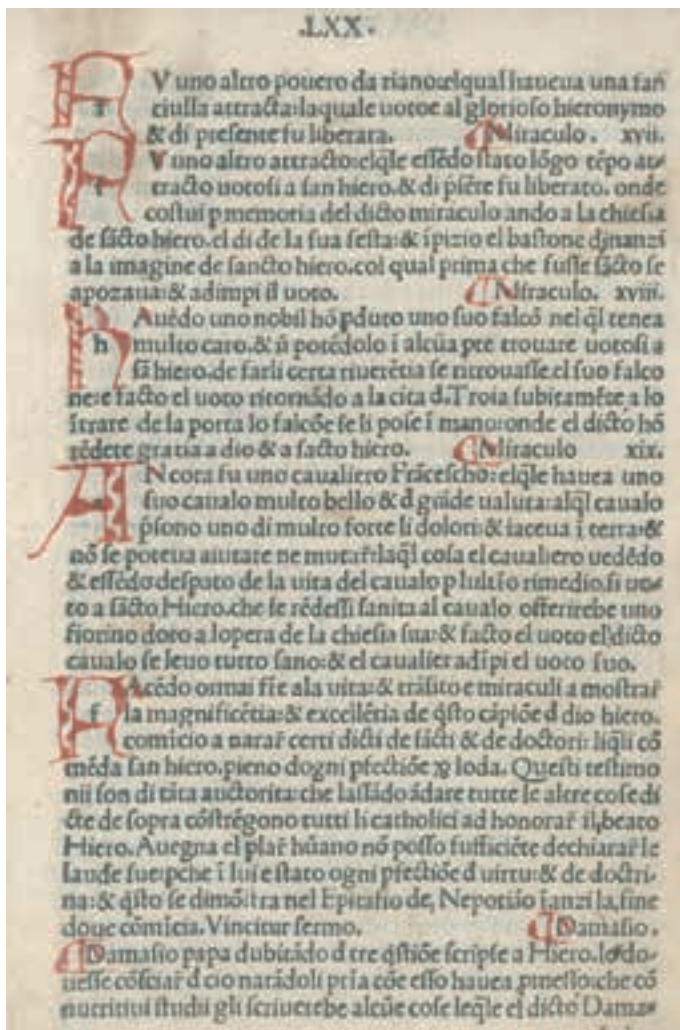 .LXX.
f V uno altro pouero da riano:elqual haueua una fan
ciulla attracta:laquale uotoe al glorioso hieronymo
& di presente fu liberata. Miraculo. xvii.
f V uno altro attracto:elq̃le essẽdo stato lõgo tẽpo at/
tracto uotosi a san hiero.& di p̃sẽte fu liberato. onde
costui p memoria del dicto miraculo ando a la chiesia
de sãcto hiero.el di de la sua festa:& ĩpizio el bastone dinanzi
a la imagine de sancto hiero.col qual prima che fusse sãcto se
apozaua:& adimpi il uoto. Miraculo. xviii.
h Auẽdo uno nobil hõ pduto uno suo falcõ nel q̃l tenea
multo caro.& ñ potẽdolo ĩ alcũa pte trouare uotosi a
sã hiero.de farli certa riuerẽtia se ritrouasse el suo falco
ne:e facto el uoto ritornãdo a la cita d̃.Troia subitamẽte a lo
ĩtrare de la porta lo falcõe se li pose ĩ mano:onde el dicto hõ
rẽdete gratia a dio & a sacto hiero. Miraculo xix.
A Ncora fu uno caualiero Frãcescho:elq̃le hauea uno
suo caualo multo bello & d̃ grãde ualuta:alq̃l caualo
p̃sono uno di multo forte li dolori:& iaceua ĩ terra:&
nõ se poteua aiutare ne mutar̃:laq̃l cosa el caualiero uedẽdo
& essẽdo despato de la uita del caualo p lultĩo rimedio.si uo/
to a sãcto Hiero.che se rẽdessi sanita al caualo offerirebe uno
fiorino doro a lopera de la chiesia sua:& facto el uoto el dicto
caualo se leuo tutto sano:& el caualier adĩpi el uoto suo.
f Acẽdo ormai fĩe ala uita:& trãsito e miraculi a mostrar̃
la magnificẽtia:& excellẽtia de q̃sto cãpiõe d dio hiero.
comĩcio a narar̃ certi dicti de sãcti & de doctori: liq̃li cõ
mẽda san hiero.pieno dogni pfectiõe & loda. Questi testimo
nii son di tãta auctorita:che lassãdo ãdare tutte le altre cose di
cte de sopra cõstrẽgono tutti li catholici ad honorar̃ il beato
Hiero. Auegna el plar̃ hũano nõ posso sufficiẽte dechiarar̃ le
laude sue:pche ĩ lui e stato ogni pfectiõe d uirtu:& de doctri-
na:& q̃sto se dimõstra nel Epitafio de, Nepotião ĩanzi la,fine
doue comĩcia. Vincitur sermo. Damasio.
Damasio papa dubitãdo d tre q̃stiõe scripse a Hiero. lo do-
uesse cõsciar̃ d cio narãdoli pria cõe esso hauea pmesso:che cõ
nutritiui studii gli scriuerebe alcũe cose leq̃le el dicto Dama/